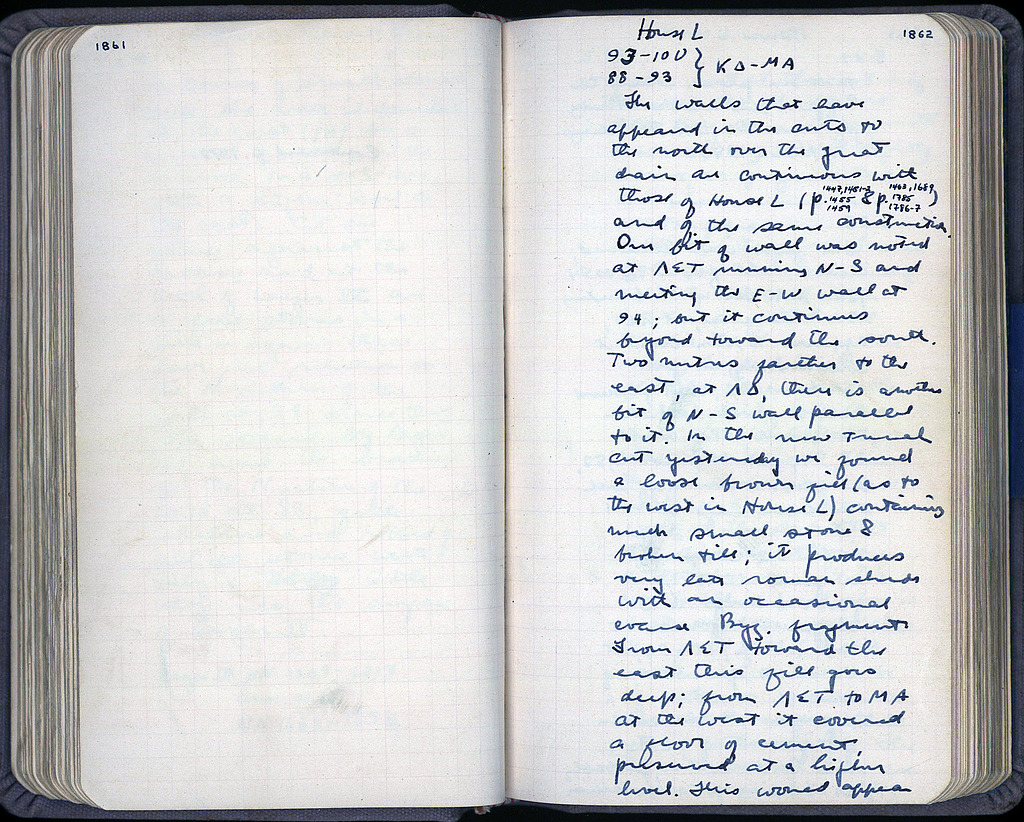 1861
1862
House L
93-100 } ΚΔ-ΜΑ
88-93
The walls that have
appeared in the cuts to
the north over the great
drain are continuous with
those of House L (p. 1447, 1451-2, 1455, 1459 & p. 1463, 1689, 1785, 1786-7)
and of the same construction.
One bit of wall was noted
at ΛΣΤ running N-S and
meeting the E-W wall at
94; but it continues
beyond toward the south.
Two metres farther to the
east, at ΛΔ, there is another
bit of N-S wall parallel
to it. In the new trench
cut yesterday we found
a loose brown fill (as to
the west in House L) containing
much small stone &
broken tile; it produces
very late roman sherds
with an occasional
coarse Byz. fragment
From ΛΣΤ toward the
east this fill goes
deep; from ΛΣΤ to ΜΑ
at the west it covered
a floor of cement,
preserved at a higher
level. This would appear